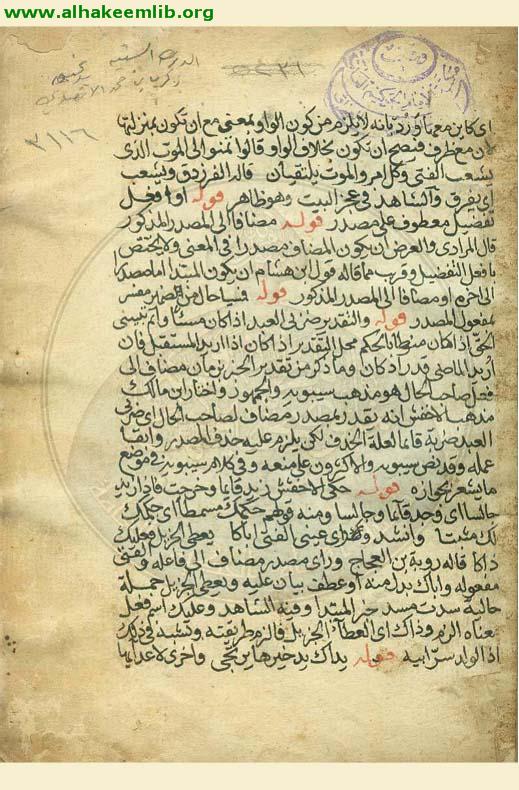 www.alhakeemlib.org
الدرر السنية
زكريا بن محمد الانصاري
٣١١٦
اى كاين معها ورد بانه لا يلزم من كون الواو بمعنى مع ان تكون بمنزلتها
لان مع ظرف فتصح ان تكون بخلاف الواو قالوا تمنوا لى الموت الذى
يشعب الفتى وكل امرء والموت يلتقيان قاله الفرزدق ويشعب
اى يفرق والشاهد فى عجز البيت وهو ظاهر قوله او افعل
تفضيل معطوف على مصدر قوله مضافا الى المصدر المذكور
قال المرادى والغرض ان يكون المضاف مصدرا فى المعنى ولا يختص
بافعل التفضيل وقريب مما قاله قول ابن هشام ان يكون المبتدا اما مصدرا
الى اخره او مضافا الى المصدر المذكور قوله مسيا حال من الضمير مفسر
بمفعول المصدر قوله والتقدير ضربى العبد اذا كان مسيا واتم تبيينى
الحق اذا كان منوطا بالحكم محل التقدير اذا كان اذا اريد المستقبل فان
اريد الماضى قدر اذ كان وما ذكر من تقدير الخبر زمان مضاف الى
فعل صاحب الحال هو مذهب سيبويه والجمهور واختار ابن مالك
مذهب الاخفش انه يقدر بمصدر مضاف لصاحب الحال اى ضربى
العبد ضربه قائما لقلة الحذف لكن يلزم عليه حذف المصدر وابقا
عمله وقد نص سيبويه والاكثرون على منعه وفى كلام سيبويه فى موضع
ما يشعر بجوازه قوله حكى الاخفش زيد قائما وخرجت فاذا زيد
جالسا اى وجد قائما وجالسا ومنه قولهم حكمك مسمطا اى حكمك
لك مثبتا وانشد وراى عينى الفتى اباكا يعطى الجزيل فعليك
ذاكا قاله روبة بن العجاج وراى مصدر مضاف الى فاعله والفتى
مفعوله واباك بدل منه او عطف بيان عليه ويعطى الجزيل جملة
حالية سدت مسد خبر المبتدا وفيه الشاهد وعليك اسم فعل
معناه الزم وذاك اى العطاء الجزيل فالزم طريقته وتشبه فى ذلك
اذ الولد سر ابيه قوله يداك يد خيرها يرتجى واخرى لاعدايها